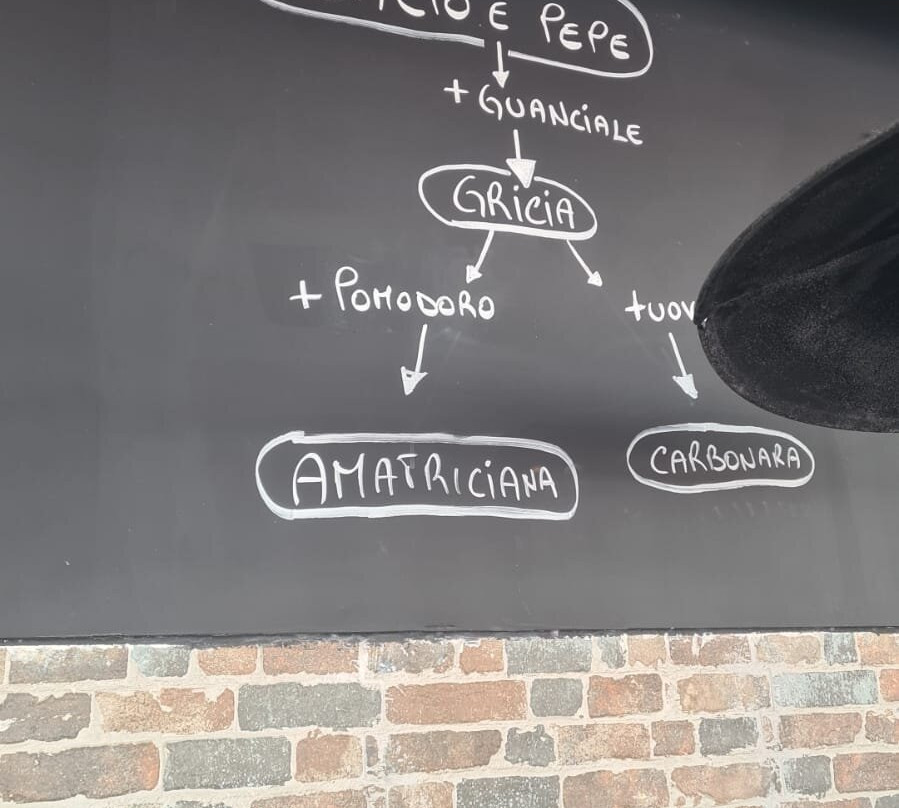 E PEPE
+ GUANCIALE
GRICIA
+ POMODORO
AMATRICIANA
CARBONARA